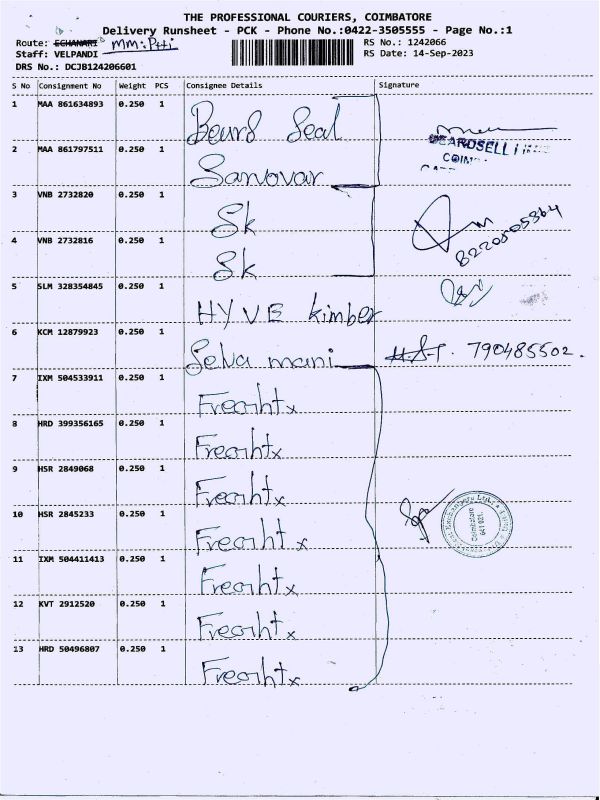 THE PROFESSIONAL COURIERS, COIMBATORE
Delivery Runsheet - PCK - Phone No.:0422-3505555 - Page No.:1
Route: ECHANARI
RS No.: 1242066
Staff: VELPANDI
RS Date: 14-Sep-2023
DRS No.: DCJB124206601
S No Consignment No Weight PCS Consignee Details Signature
1 MAA 861634893 0.250 1 Beurd Seal
2 MAA 861797511 0.250 1 Sanovar
BEARDSELL
3 VNB 2732820 0.250 1 Sk
4 VNB 2732816 0.250 1 Sk
5 SLM 328354845 0.250 1 HYVE kimber
6 KCM 12879923 0.250 1 Selva mani 790485502.
7 IXM 504533911 0.250 1 Freorhtx
8 HRD 399356165 0.250 1 Freorhtx
9 HSR 2849068 0.250 1 Freorhtx
10 HSR 2845233 0.250 1 Freorhtx
Coimbatore
641 021.
11 IXM 504411413 0.250 1 Freorhtx
12 KVT 2912520 0.250 1 Freorhtx
13 HRD 50496807 0.250 1 Freorhtx